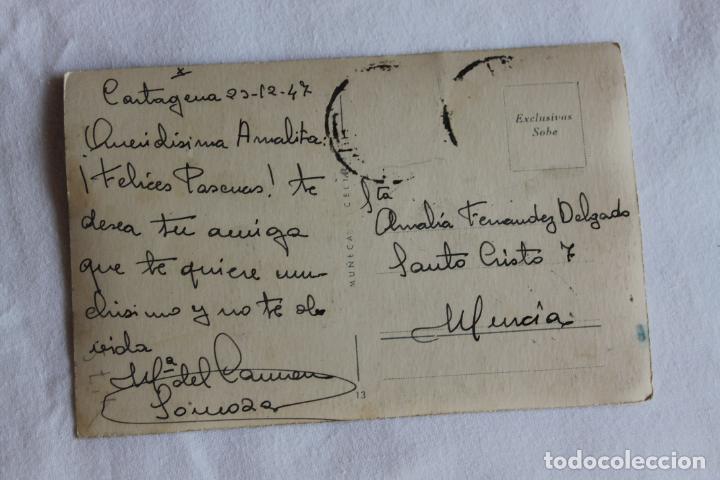 Cartagena 23-12-47
Queridísima Amalita:
¡Felices Pascuas! te
desea tu amiga
que te quiere mu-
chísimo y no te ol-
vida
Mª del Carmen
Somoza
MUÑECAS
13
Exclusivas
Sobe
Sta
Amalia Fernández Delgado
Santo Cristo 7
Murcia
todocoleccion.net